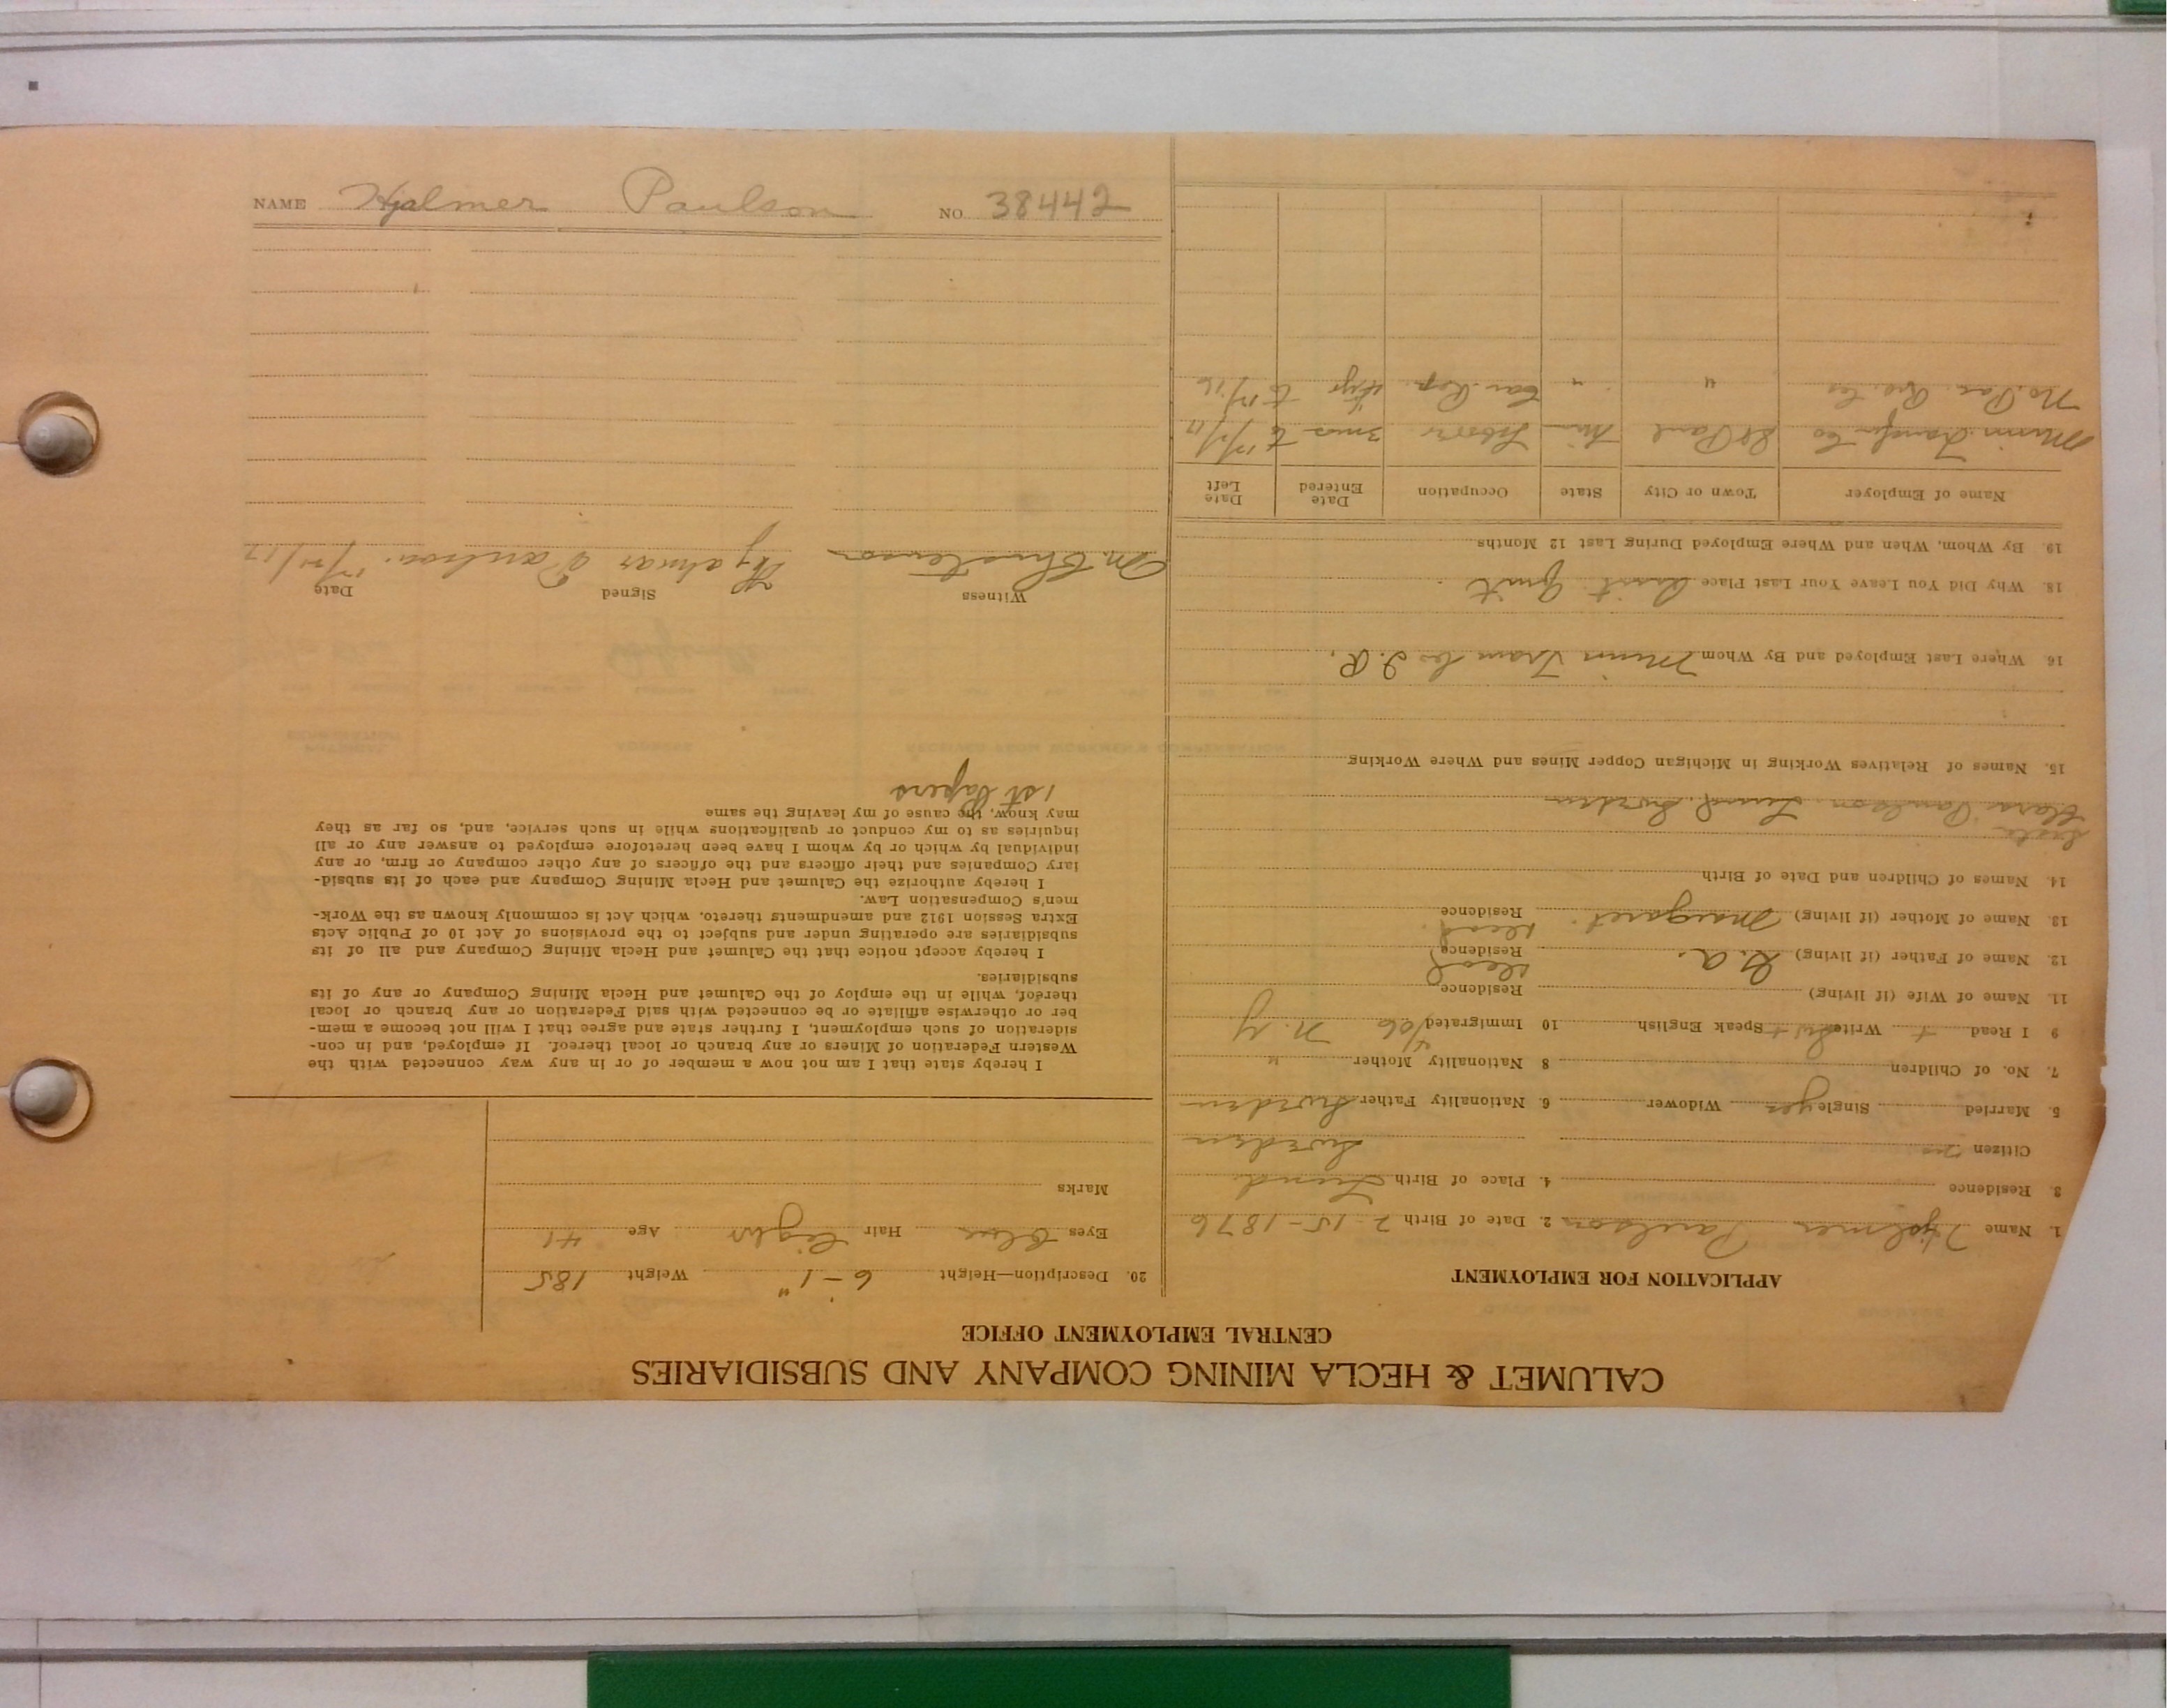 CALUMET & HECLA MINING COMPANY AND SUBSIDIARIES
CENTRAL EMPLOYMENT OFFICE
APPLICATION FOR EMPLOYMENT
1. Name Hjalmer Paulson 2. Date of Birth 2-15-1876
3. Residence 4. Place of Birth Lund
Citizen no Sweden
5. Married Single yes Widower 6. Nationality Father Sweden
7. No. of Children 8 Nationality Mother "
9 I Read + Write + Speak English 10 Immigrated N.Y
11. Name of Wife (if living) Residence
12. Name of Father (if living) Residence dead
13. Name of Mother (if living) Margaret Residence dead
14. Names of Children and Date of Birth
Sister
Clara Paulson Lund Sweden
15. Names of Relatives Working in Michigan Copper Mines and Where Working
16. Where Last Employed and By Whom Minn Trans Co
18. Why Did You Leave Your Last Place Just Quit
19. By Whom, When and Where Employed During Last 12 Months
Name of Employer Town or City State Occupation Date Entered Date Left
Minn. Transfer Co St Paul Min 3 mos to
No. Pac. " " Car Rep. 4 yrs to
20. Description—Height 6-1" Weight 185
Eyes Blue Hair Light Age 41
Marks
I hereby state that I am not now a member of or in any way connected with the
Western Federation of Miners or any branch or local thereof. If employed, and in con-
sideration of such employment, I further state and agree that I will not become a mem-
ber or otherwise affiliate or be connected with said Federation or any branch or local
thereof, while in the employ of the Calumet and Hecla Mining Company or any of its
subsidiaries.
I hereby accept notice that the Calumet and Hecla Mining Company and all of its
subsidiaries are operating under and subject to the provisions of Act 10 of Public Acts
Extra Session 1912 and amendments thereto, which Act is commonly known as the Work-
men's Compensation Law.
I hereby authorize the Calumet and Hecla Mining Company and each of its subsid-
iary Companies and their officers and the officers of any other company or firm, or any
individual by which or by whom I have been heretofore employed to answer any or all
inquiries as to my conduct or qualifications while in such service, and, so far as they
may know, the cause of my leaving the same
1st Papers
Witness Signed Date
M. Christenson Hjalmar Paulson
NAME Hjalmer Paulson NO. 38442